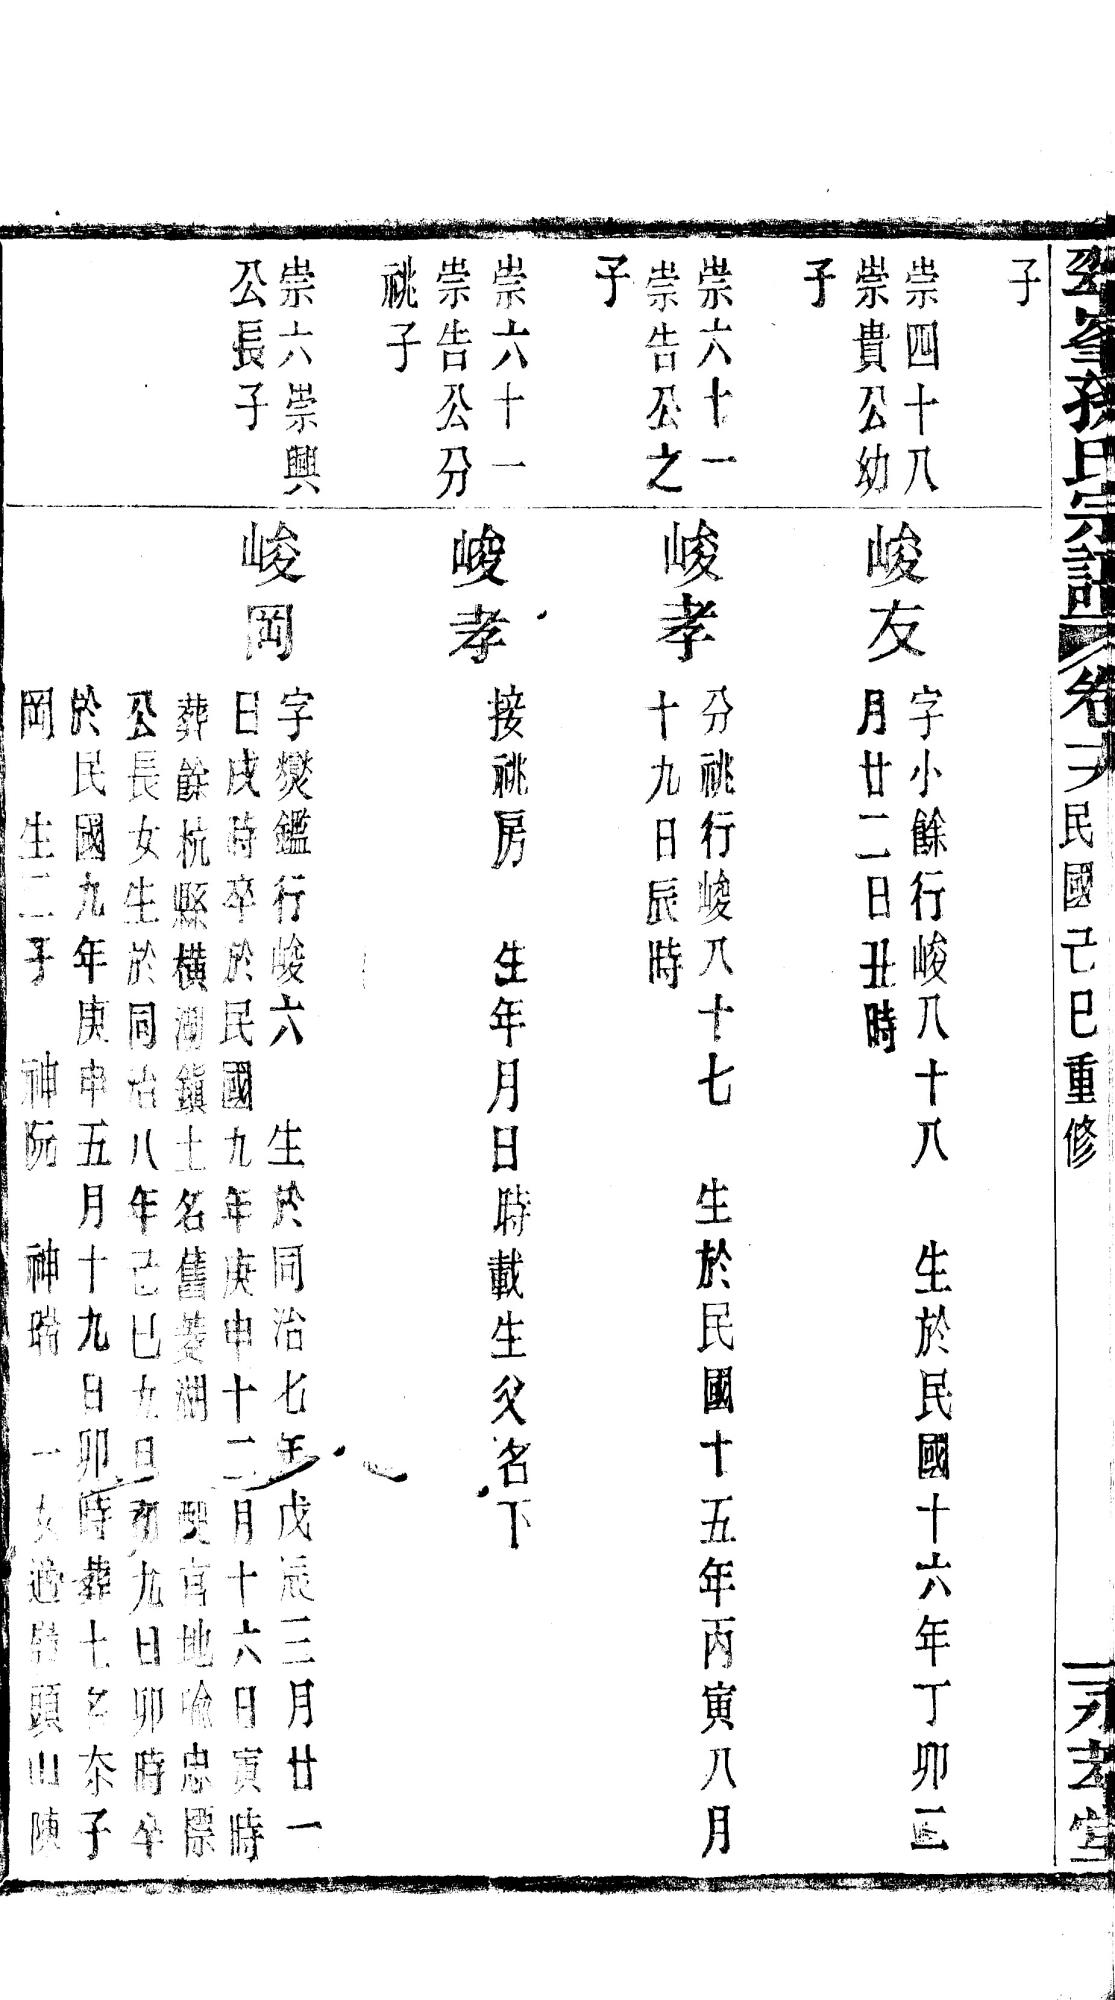 孫氏宗譜 卷 民國己巳重修
孝堂
子
崇四十八
崇貴公幼
子
峻友
字小餘行峻八十八 生於民國十六年丁卯三
月廿二日丑時
崇六十一
崇告公之
子
峻孝
分祧行峻八十七 生於民國十五年丙寅八月
十九日辰時
崇六十一
崇告公分
祧子
峻孝
接祧房 生年月日時載生父名下
崇六崇興
公長子
峻岡
字爕鑑行峻六 生於同治七年戊辰三月廿一
日戌時卒於民國九年庚申十二月十六日寅時
葬餘杭縣橫湖鎮土名舊菱湖 娶官地喻忠標
公長女生於同治八年己巳九月初九日卯時卒
於民國九年庚申五月十九日卯時葬土名柰子
岡 生二子 神阮 神瑞 一女適 頭山陳